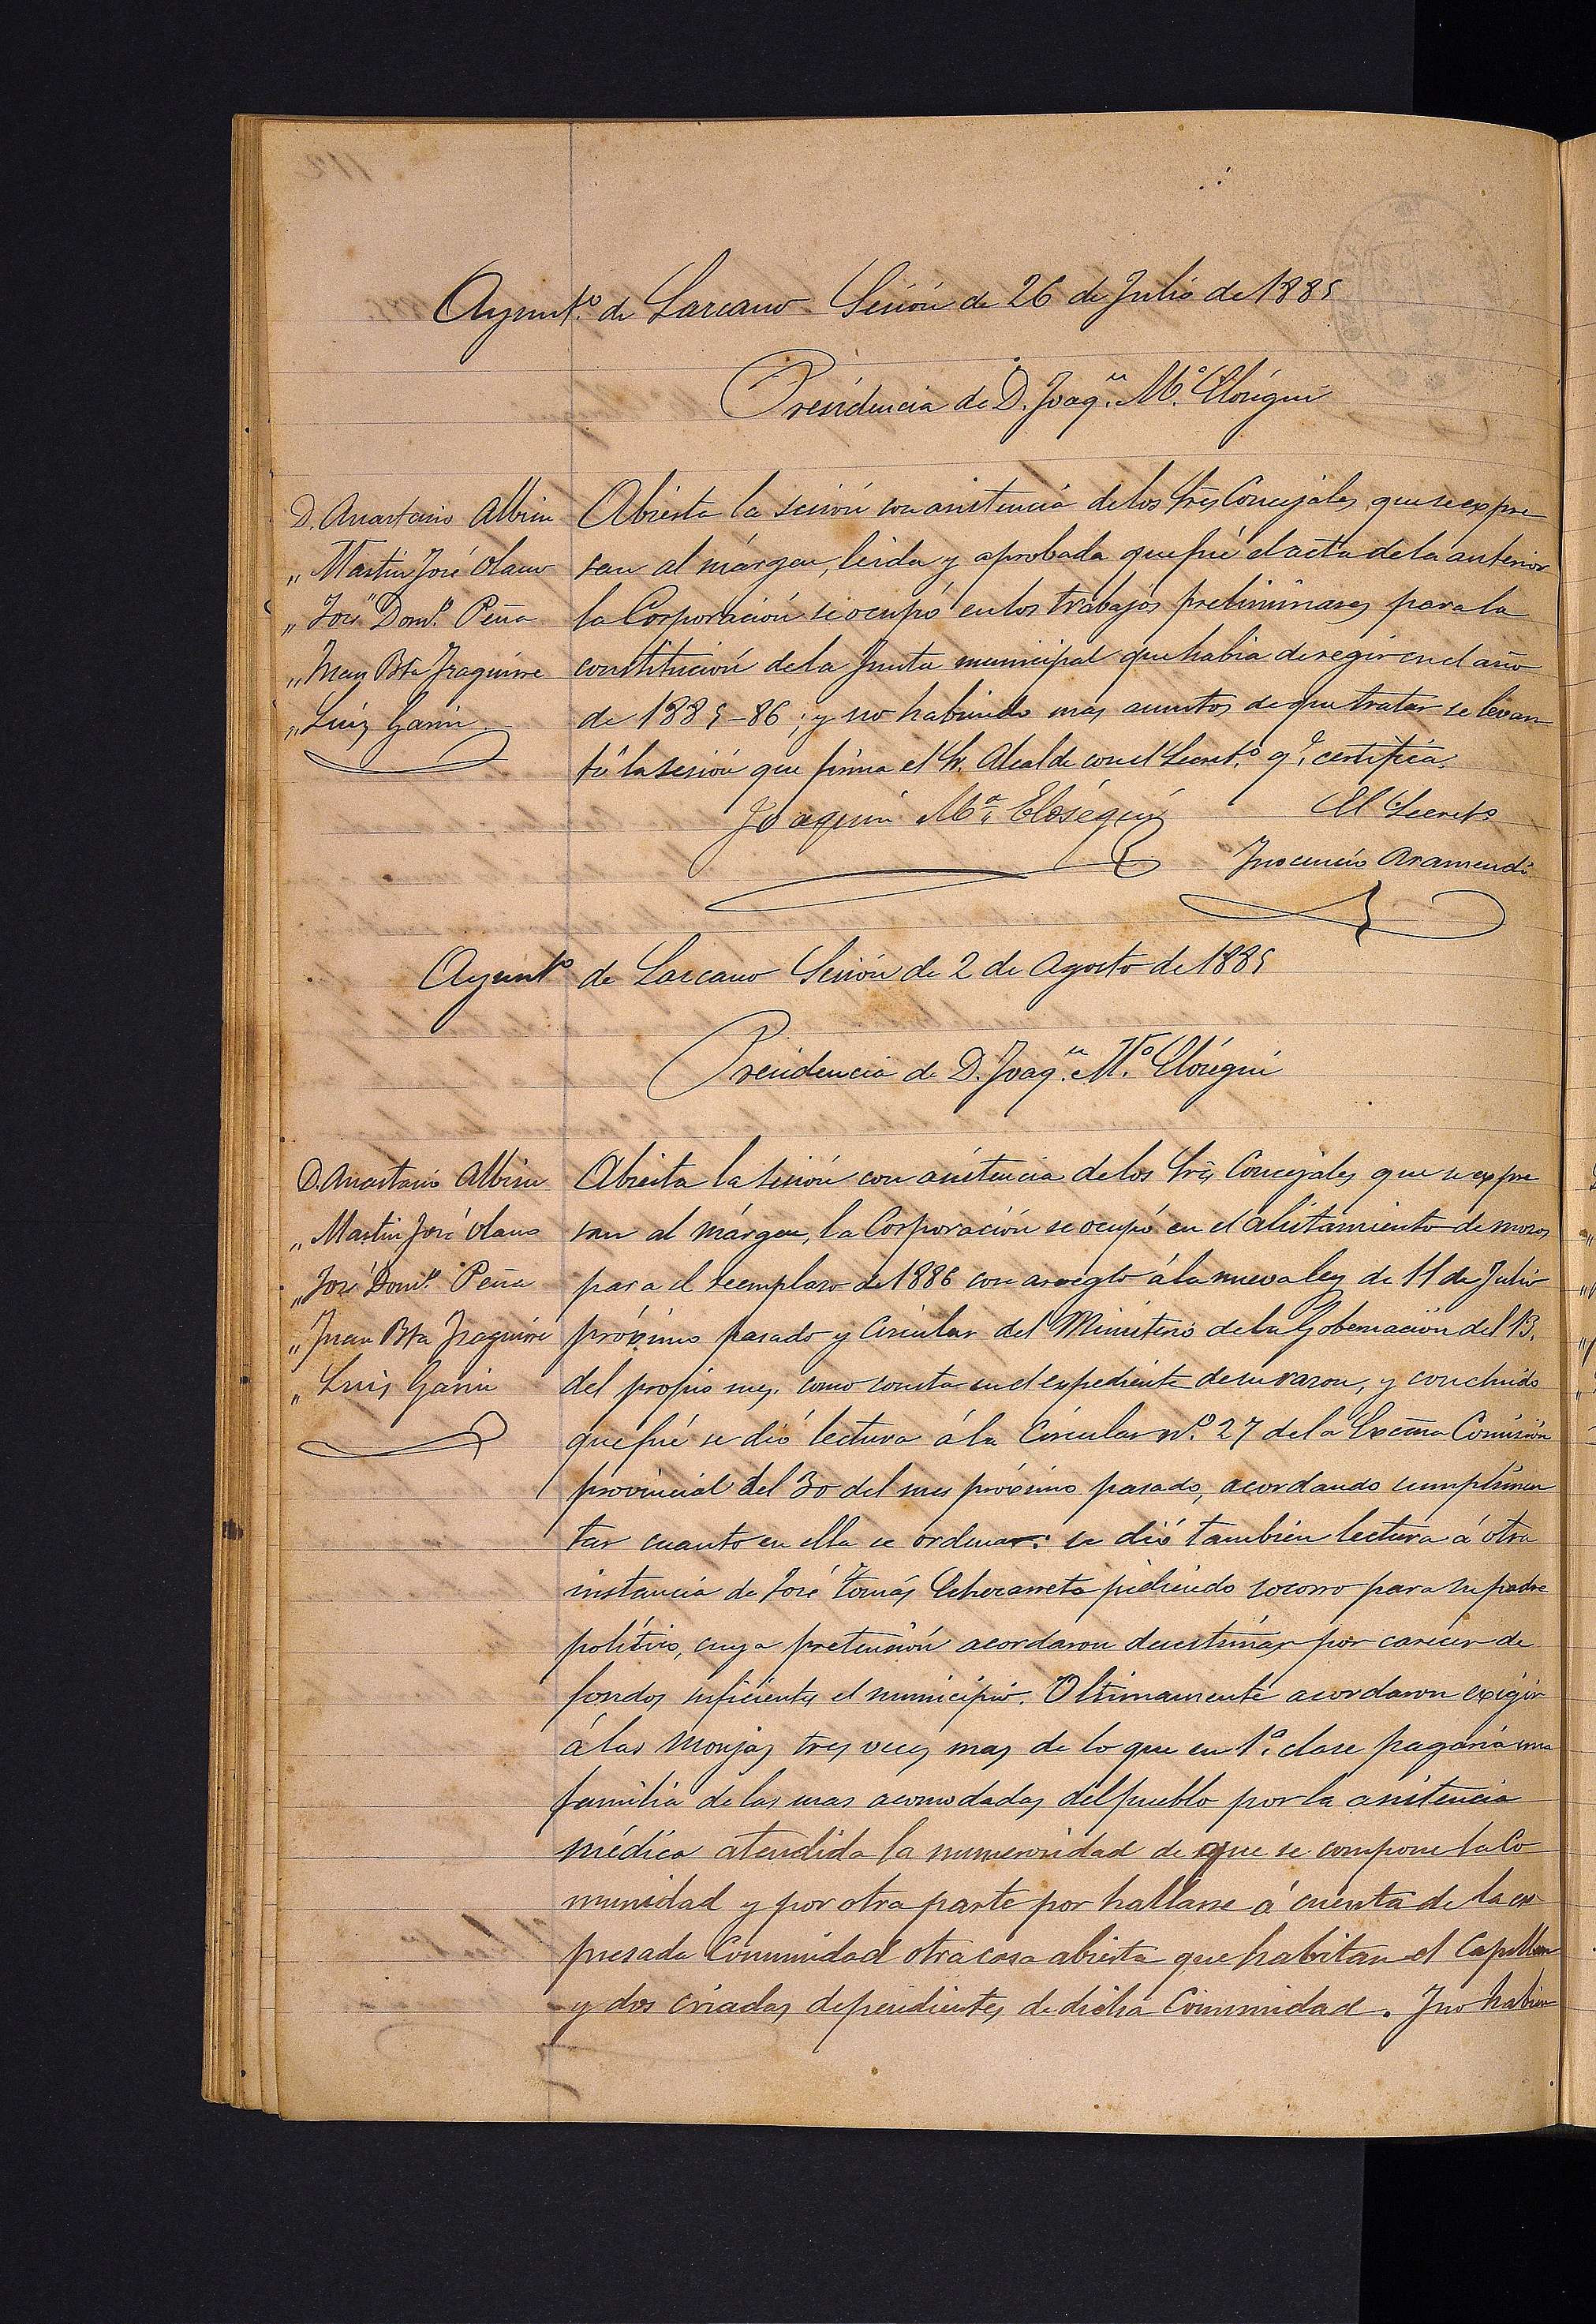 Ayunt.º de Lazcano Sesión de 26 de Julio de 1885
Presidencia de D. Joaq.n M.ª Elósegui
D. Anastasio Albisu
„ Martin José Olano
„ José Dom.º Peña
„ Juan Bta Iraguirre
„ Luis Garin
Abierta la sesión con asistencia de los Srês Concejales que se expre
san al márgen, leida y aprobada que fué el acta de la anterior
la Corporación se ocupó en los trabajos preliminares para la
constitución de la Junta municipal que habia de regir en el año
de 1885-86; y no habiendo mas asuntos de que tratar se levan
tó la sesión que firma el Sr. Alcalde con el Secret.º q.e certifica.
Joaquin M.ª Elósegui
El Secret.º
Inocencio Aramendi
Ayunt.º de Lazcano Sesión de 2 de Agosto de 1885
Presidencia de D. Joaq.n M.ª Elósegui
D. Anastasio Albisu
„ Martin José Olano
„ José Dom.º Peña
„ Juan Bta Iraguirre
„ Luis Garin
Abierta la sesión con asistencia de los Srês Concejales que se expre
san al márgen, la Corporación se ocupó en el alistamiento de mozos
para el reemplazo de 1886 con arreglo á la nueva ley de 11 de Julio
próximo pasado y Circular del Ministerio de la Gobernación del 13.
del propio mes. como consta en el expediente de su razon, y concluido
que fué se dió lectura á la Circular nº. 27 de la Excma Comisión
provincial del 30 del mes próximo pasado, acordando cumplimen
tar cuanto en ella se ordena: se dió también lectura á otra
instancia de José Tomás Echezarreta pidiendo socorro para su padre
político, cuya pretensión acordaron desestimar por carecer de
fondos suficientes el municipio. Ultimamente acordaron exigir
á las Monjas tres veces mas de lo que en 1ª. clase pagaria una
familia de las mas acomodadas del pueblo por la asistencia
médica atendida la numerosidad de que se compone la Co
munidad y por otra parte por hallarse á cuenta de la ex
presada Comunidad otra casa abierta que habitan el Capellan
y dos criadas dependientes de dicha Comunidad. Y no habien